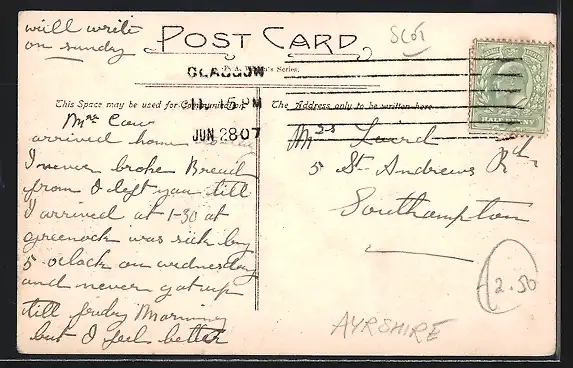 will write
on sunday
POST CARD
SCOT
Series.
GLASGOW
11.15 PM
JUN 28 07
This Space may be used for Communication.
The Address only to be written here
HALFPENNY
Mrs
arrived home
I never broke Bread
from I left you till
I arrived at 1-30 at
greenock was sick by
5 oclock on wednesday
and never got up
till friday Morning
but I feel better
Mrs Laird
5 St Andrews Rd
Southampton
2.50
AYRSHIRE